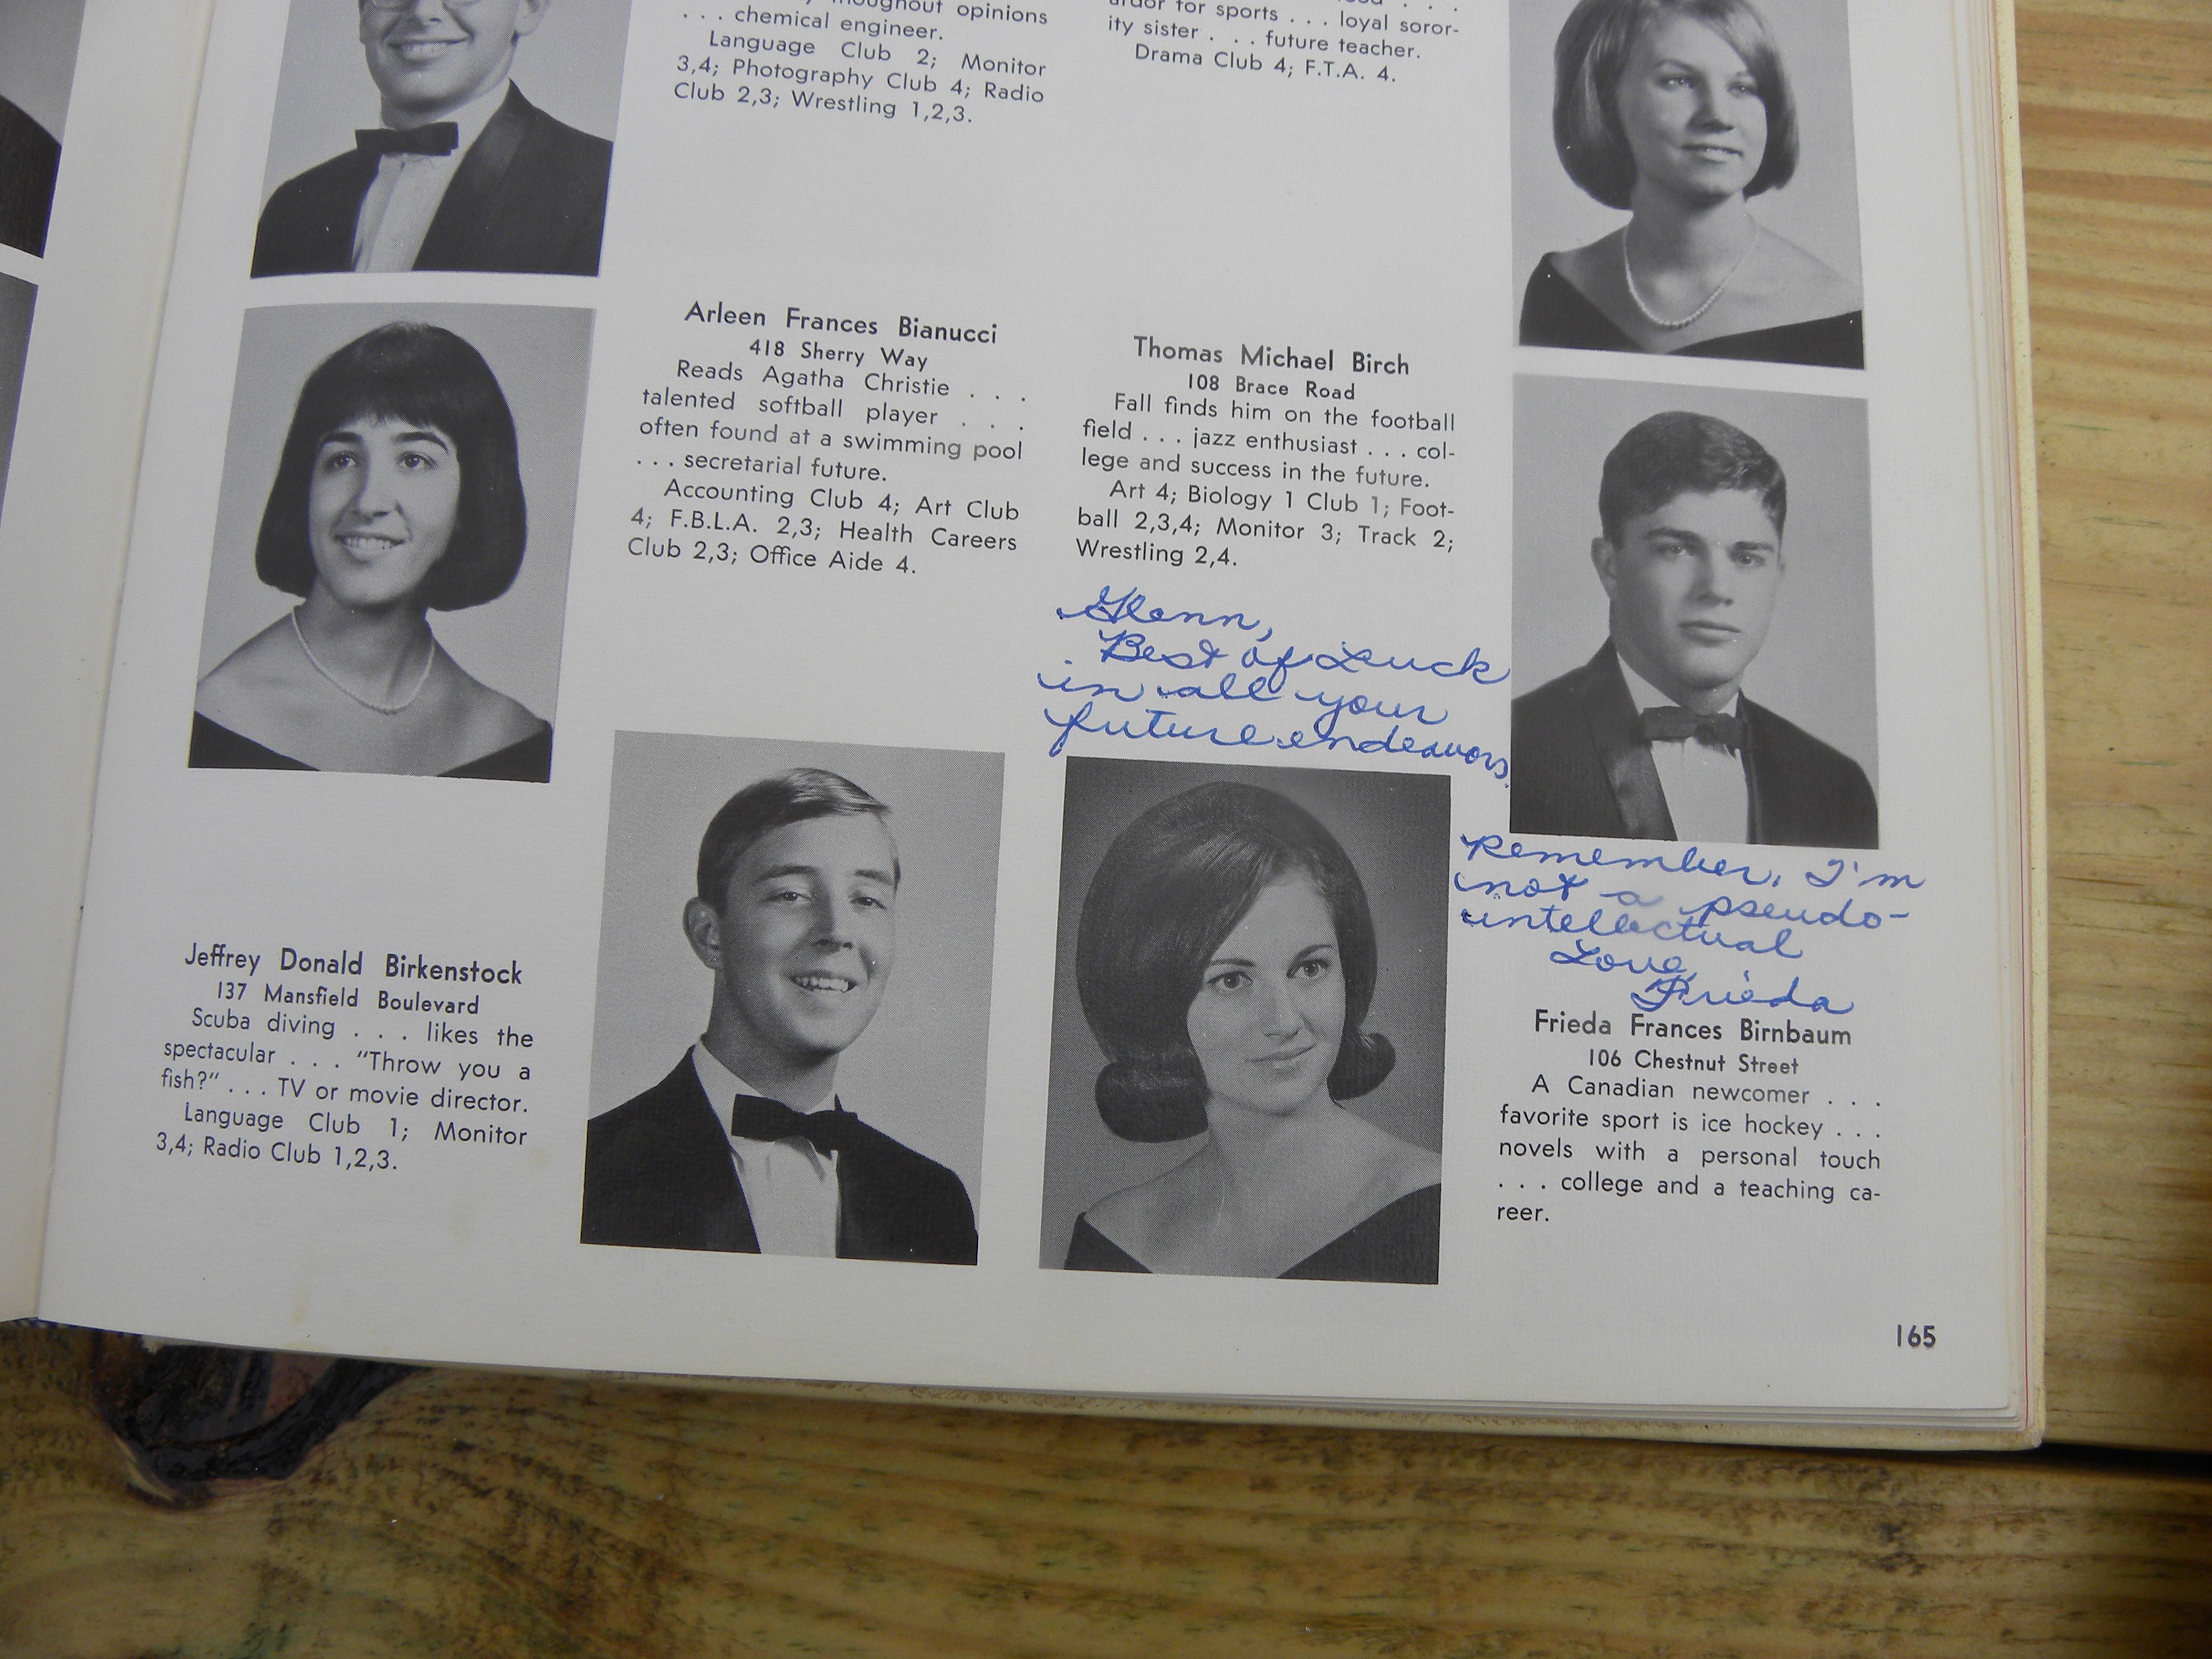 throughout opinions
. . . chemical engineer.
Language Club 2; Monitor
3,4; Photography Club 4; Radio
Club 2,3; Wrestling 1,2,3.
for sports . . . loyal soror-
ity sister . . . future teacher.
Drama Club 4; F.T.A. 4.
Arleen Frances Bianucci
418 Sherry Way
Reads Agatha Christie . . .
talented softball player . . .
often found at a swimming pool
. . . secretarial future.
Accounting Club 4; Art Club
4; F.B.L.A. 2,3; Health Careers
Club 2,3; Office Aide 4.
Thomas Michael Birch
108 Brace Road
Fall finds him on the football
field . . . jazz enthusiast . . . col-
lege and success in the future.
Art 4; Biology 1 Club 1; Foot-
ball 2,3,4; Monitor 3; Track 2;
Wrestling 2,4.
Glenn,
Best of Luck
in all your
future endeavors.
Remember, I'm
not a pseudo-
intellectual
Love,
Frieda
Jeffrey Donald Birkenstock
137 Mansfield Boulevard
Scuba diving . . . likes the
spectacular . . . "Throw you a
fish?" . . . TV or movie director.
Language Club 1; Monitor
3,4; Radio Club 1,2,3.
Frieda Frances Birnbaum
106 Chestnut Street
A Canadian newcomer . . .
favorite sport is ice hockey . . .
novels with a personal touch
. . . college and a teaching ca-
reer.
165